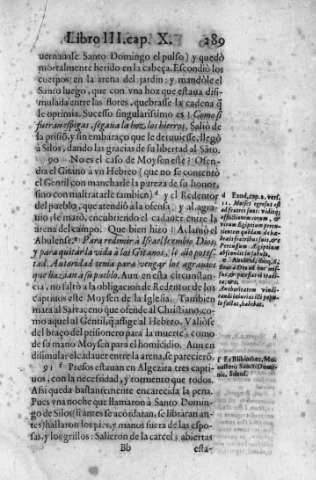 Libro III. cap. X. 289
uernauase Santo Domingo el pulso) y quedò
mortalmente herido en la cabeça. Escondiò los
cuerpos en la arena del jardin: y mandòle el
Santo luego, que con vna hoz que estaua dissi-
mulada entre las flores, quebrasse la cadena q̃
le oprimia. Sucesso singularissimo es! Como si
fueran espigas, segaua la hoz los hierros. Saliò de
la prisiõ, y sin embaraço que le detuuiesse, llegò
à Silos, dando las gracias de su libertad al Sãto.
90 No es el caso de Moysen este? Ofen-
dia el Gitano à vn Hebreo (que no se contentò
el Gentil con mancharle la pureza de su honor,
sino con maltratarle tambien) d y el Redentor
del pueblo, que atendiò a la ofensa, y al agra-
uio, le matò, encubriendo el cadauer entre la
arena del campo. Que bien hizo! Aclamò el
Abulense. e Para redimir à Israel le embio Dios,
y para quitar la vida à los Gitanos, le diò potes-
tad. Autoridad tenia para vengar los agrauios
que hazian a su pueblo. Aun en esta circunstan-
cia, no faltò a la obligacion de Redentor de los
captiuos este Moysen de la Iglesia. Tambien
mata al Sarraceno que ofende al Christiano, co-
mo aquel al Gentil, q̃ aflige al Hebreo. Valiòse
del braço del prisonero para la muerte, como
de su mano Moysen para el homicidio. Aun en
dissimular el cadauer entre la arena, se pareciero.
91 f Presos estauan en Algezira tres capti-
uos, con la necessidad, y tormento que todos.
Assi queda bastantemente encarecida la pena.
Pues vna noche que llamaron à Santo Domin-
go de Silos (si antes se acordatan, se libraran an-
tes) hallaron los pies, y manos fuera de las espo-
sas, y los grillos: Salieron de la carcel; abiertas
Bb esta-
d Exod. cap. 2. vers.
11. Moises egressus est
ad fratres suos: vidit q;
afflictionem eorum, &
virum Ægyptium per-
cutientem quẽdam de He-
bræis fratribus suis, &c.
Percussum Ægyptium
abscondit in sabulo.
e Abulens.
Authoritatem vindi-
candi iniurias illi popu-
lo factas, habebat.
f Ex Biblioth. Mo-
nasterij Sancti Domi-
nic. Silens.